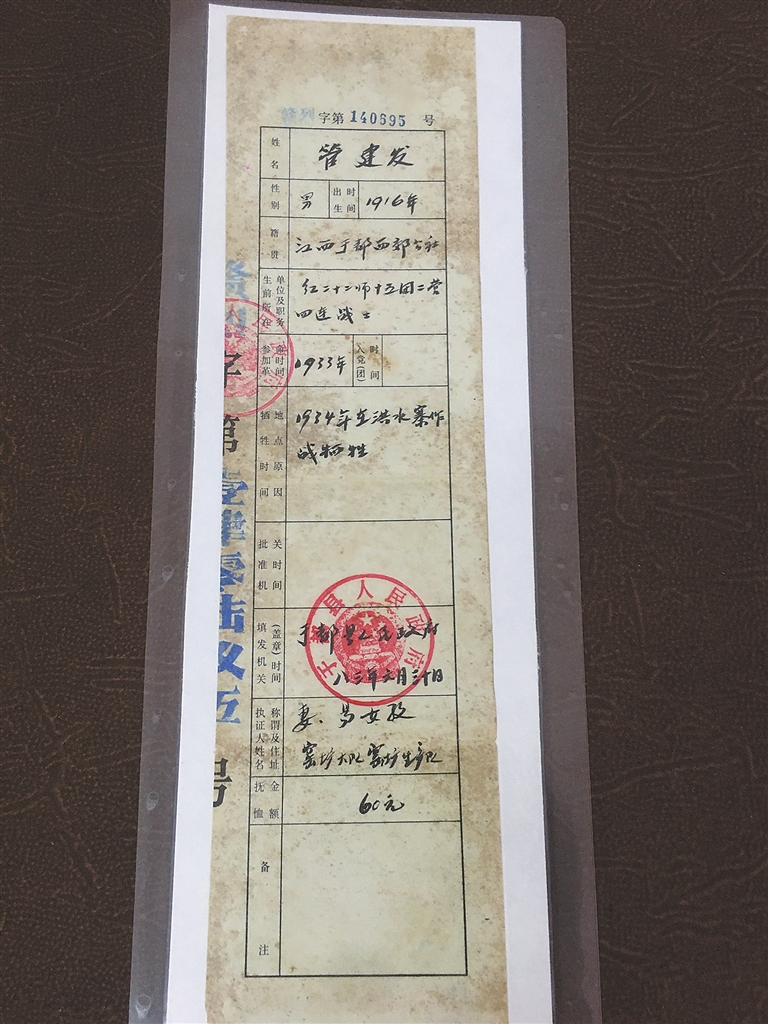 赣烈字第140695号
姓名 管建发
性别 男 出生时间 1916年
籍贯 江西于都西郊公社
生前所在单位及职务 红二十二师十五团二营
四连战士
参加革命时间 1933年 入党(团)时间
牺牲时间地点原因 1934年在洪水寨作
战牺牲
批准机关时间
填发机关(盖章)时间 于都县人民政府
八三年六月三十日
执证人姓名称谓及住址 妻、易女孜
窑塘大队窑塘生产队
抚恤金额 60元
备注
于都县人民政府
赣烈字第壹肆零陆玖伍号